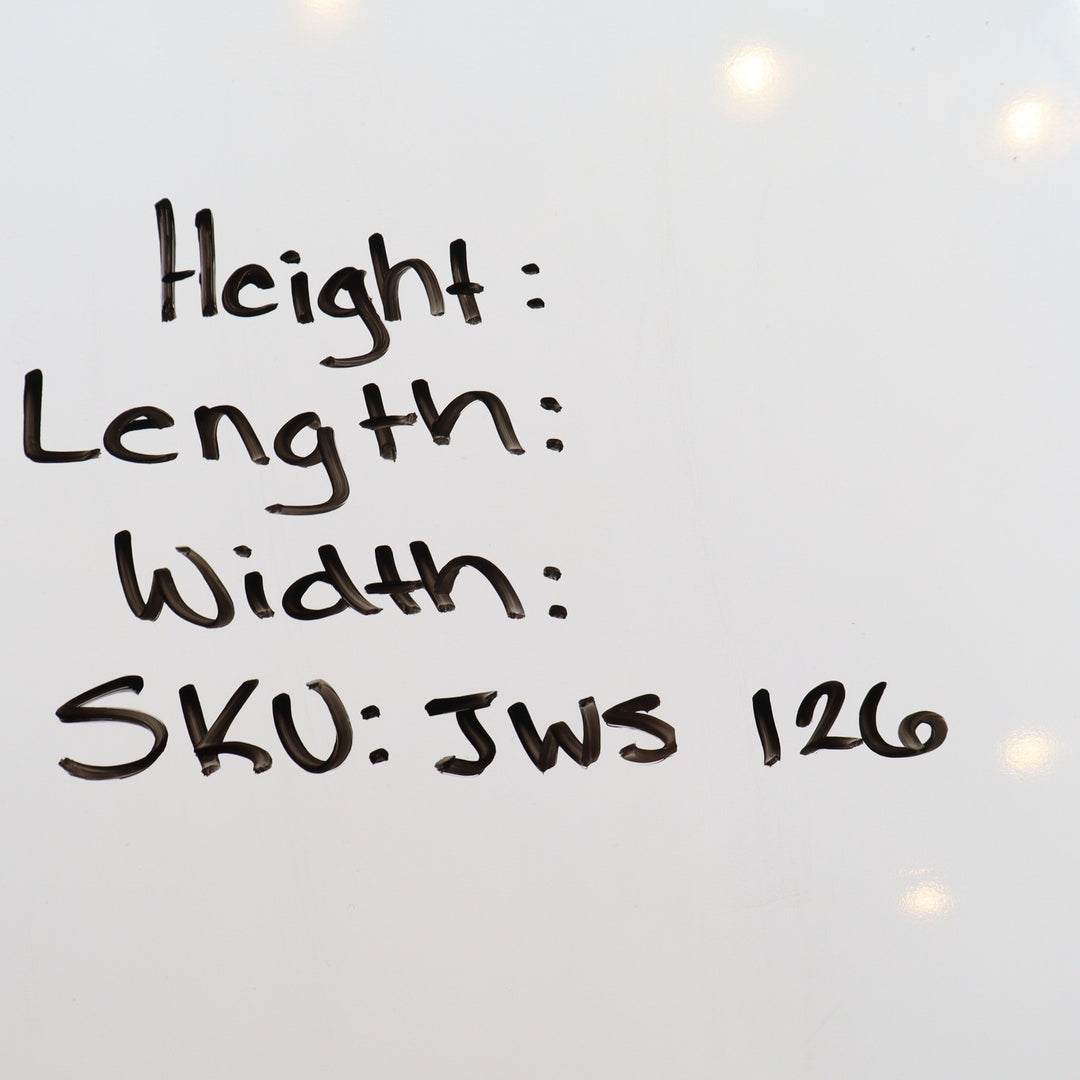 Height:
Length:
Width:
SKU: JWS 126